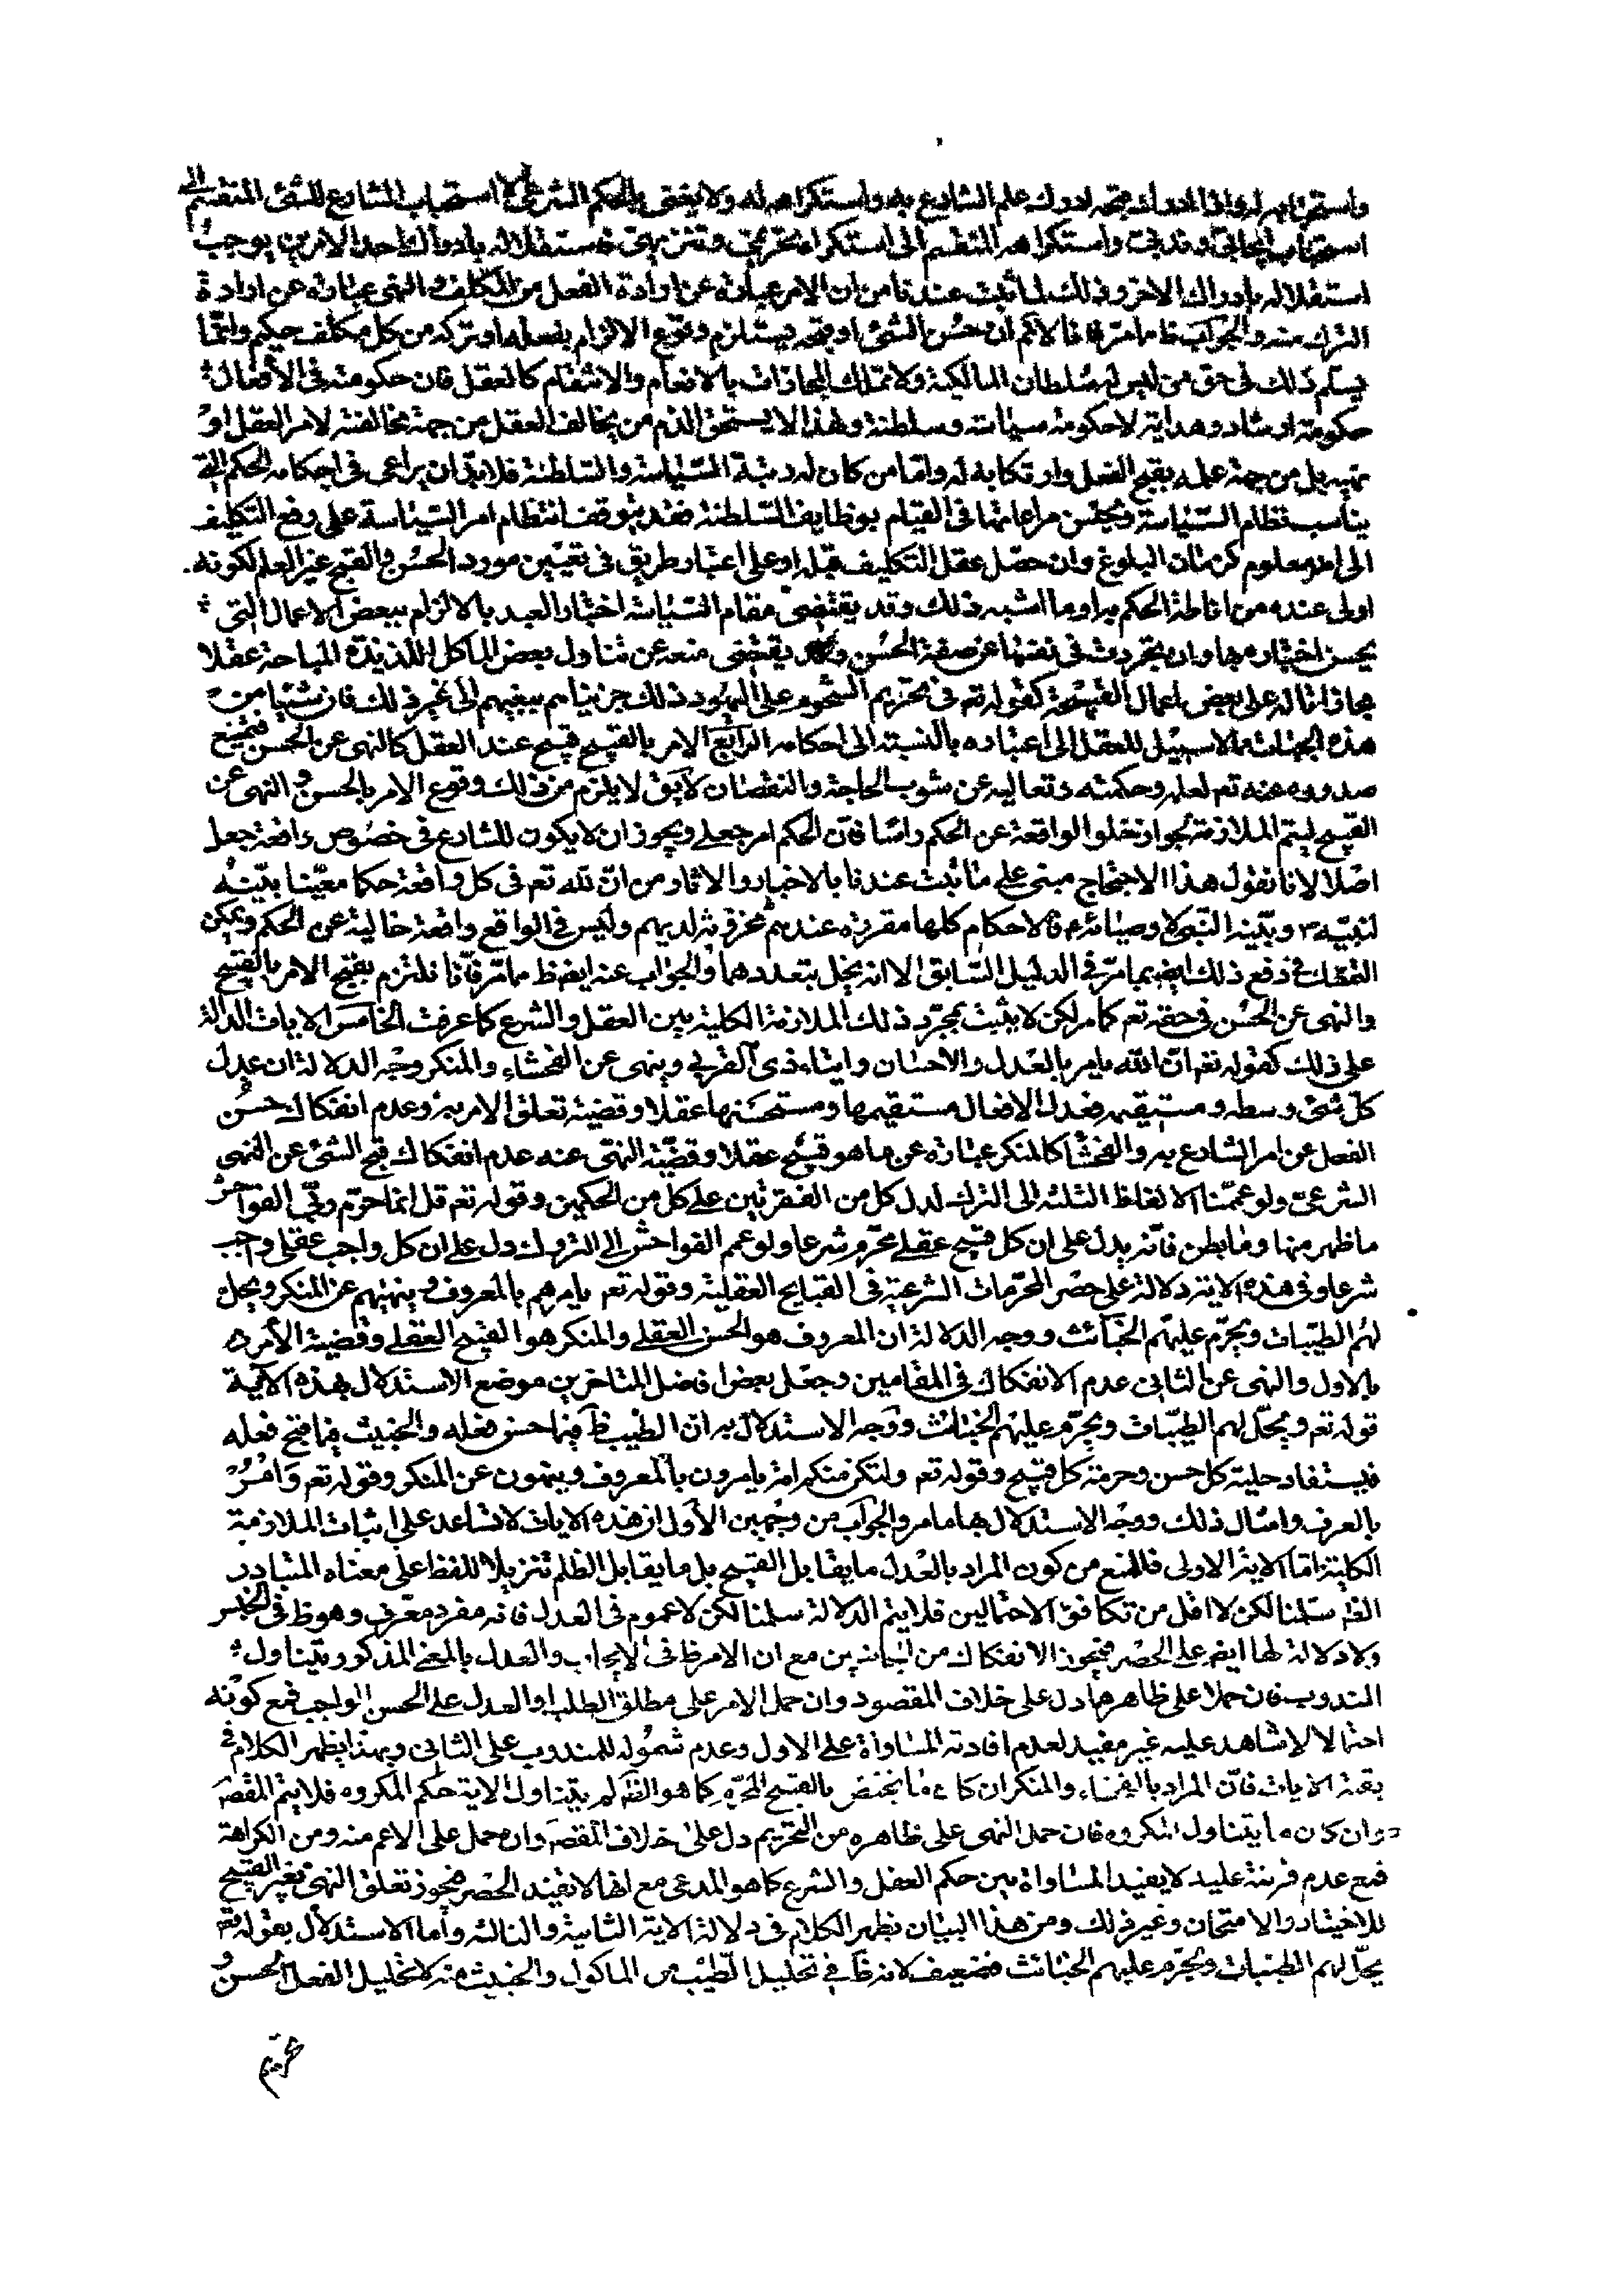 واستحبابه له واذا ادرك قبحه ادرك علم الشارع به واستكراهه له ولا يعنى بالحكم الشرعى الا استحباب الشارع للشئ المنقسم الى
استحباب ايجابى وندبى واستكراهه المنقسم الى استكراه تحريمى وتنزيهى فاستقلاله بادراك احد الامرين يوجب
استقلاله بادراك الاخر وذلك لما ثبت عندنا من ان الامر عبارة عن ارادة الفعل من المكلف والنهى عبارة عن ارادة
الترك منه والجواب ظ مما مر فانا لانم ان حسن الشئ او قبحه يستلزم وقوع الالزام بفعله او تركه من كل مكلف حكيم وانما
يسلم ذلك فى حق من ليس له سلطان المالكية ولا تملك المجازات بالانعام والانتقام كالعقل فان حكومته فى الأفعال
حكومة ارشاد وهداية لا حكومة سياسة وسلطنة ولهذا لا يستحق الذم من يخالف العقل من جهة مخالفته لامر العقل او
نهيه بل من جهة علمه بقبح الفعل وارتكابه له واما من كان له رتبة السياسة والسلطنة فلا بد ان يراعى فى احكامه الحكم التى
يناسب نظام السياسة ويحسن مراعاتها فى القيام بوظايف السلطنة فقد يتوقف انتظام امر السياسة على رفع التكليف
الى امر معلوم كزمان البلوغ وان حصل عقل التكليف قبله او على اعتبار طريق فى تعيين مورد الحسن والقبح غير العلم لكونه
اولى عنده من اناطة الحكم به او ما اشبه ذلك وقد يقتضى مقام السياسة اختبار العبد بالالزام ببعض الاعمال التى
يحسن اختباره بها وان تجردت فى نفسها عن صفة الحسن وقد يقتضى منعه عن تناول بعض الماكل اللذيذة المباحة عقلا
مجازاتا له على بعض اعمال القبيحة كقوله تعم فى تحريم الشحوم على اليهود ذلك جزيناهم ببغيهم الى غير ذلك فان شيئا من
هذه الجهات مما لا سبيل للعقل الى اعتباره بالنسبة الى احكامه الرابع الامر بالقبيح قبيح عند العقل كالنهى عن الحسن فيمتنع
صدوره عنه تعم لعلمه وحكمته وتعاليه عن شوب الحاجة والنقصان لايق لا يلزم من ذلك وقوع الامر بالحسن والنهى عن
القبيح ليتم الملازمة لجواز تخلو الواقعة عن الحكم راسا فان الحكم امر جعلى ويجوز ان لا يكون للشارع فى خصوص واقعة جعل
اصلا لانا نقول هذا الاحتجاج مبنى على ما ثبت عندنا بالاخبار والاثار من ان لله تعم فى كل واقعة حكما معينا بينه
لنبيه ص وبينه النبى لاوصيائه ع فالاحكام كلها مقررة عندهم مخزونة لديهم وليس فى الواقع واقعة خالية عن الحكم ويمكن
التمسك فى دفع ذلك ايض بما مر فى الدليل السابق الا انه يخل بتعددهما والجواب عنه ايض ظ مما مر فانا نلتزم بقبح الامر بالقبيح
والنهى عن الحسن فى حقه تعم كما مر لكن لا يثبت بمجرد ذلك الملازمة الكلية بين العقل والشرع كما عرفت الخامس الايات الدالة
على ذلك كقوله تعم ان الله يامر بالعدل والاحسان وايتاء ذى القربى وينهى عن الفحشاء والمنكر وجه الدلالة ان عدل
كل شئ وسطه ومستقيمه فعدل الافعال مستقيمها ومستحسنها عقلا وقضية تعلق الامر به وعدم انفكاك حسن
الفعل عن امر الشارع به والفحشا كالمنكر عبارة عن ما هو قبيح عقلا وقضية النهى عنه عدم انفكاك قبح الشئ عن النهى
الشرعى ولو عممنا الالفاظ الثلثة الى الترك لدل كل من الفقرتين على كل من الحكمين وقوله تعم قل انما حرم ربى الفواحش
ما ظهر منها وما بطن فانه يدل على ان كل قبيح عقلى محرم شرعا ولو عمم الفواحش الى التروك دل على ان كل واجب عقلى واجب
شرعا وفى هذه الاية دلالة على حصر المحرمات الشرعية فى القبايح العقلية وقوله تعم يامرهم بالمعروف وينهيهم عن المنكر ويحل
لهم الطيبات ويحرم عليهم الخبائث ووجه الدلالة ان المعروف هو الحسن العقلى والمنكر هو القبيح العقلى وقضية الأمر
بالاول والنهى عن الثانى عدم الانفكاك فى المقامين وجعل بعض افاضل المتاخرين موضع الاستدلال بهذه الآية
قوله تعم ويحل لهم الطيبات ويحرم عليهم الخبائث ووجه الاستدلال به ان الطيب ظ فيما حسن فعله والخبيث فيما قبح فعله
فيستفاد حلية كل حسن وحرمة كل قبيح وقوله تعم ولتكن منكم امة يامرون بالمعروف وينهون عن المنكر وقوله تعم وامر
بالعرف وامثال ذلك ووجه الاستدلال بها ما مر والجواب من وجهين الأول ان هذه الايات لا تساعد على اثبات الملازمة
الكلية اما الاية الاولى فللمنع من كون المراد بالعدل ما يقابل القبيح بل ما يقابل الظلم تنزيلا للفظ على معناه المتبادر
سلمنا لكن لا اقل من تكافؤ الاحتمالين فلا يتم الدلالة سلمنا لكن لا عموم فى العدل فانه مفرد معرف وهو ظ فى الجنس
ولا دلالة لها ايض على الحصر فيجوز الانفكاك من الجانبين مع ان الامر ظ فى الايجاب والعدل بالمعنى المذكور يتناول
المندوب فان حملا على ظاهرهما دل على خلاف المقصود وان حمل الامر على مطلق الطلب او العدل على الحسن الواجب فمع كونه
احتمالا لا شاهد عليه غير مفيد لعدم افادته المساواة على الاول وعدم شموله للمندوب على الثانى وبهذا يظهر الكلام فى
بقية الايات فان المراد بالفحشاء والمنكر ان كان ما يختص بالقبيح المحرم كما هو الظ لم يتناول الاية حكم المكروه فلا يتم المقص
وان كان ما يتناول المكروه فان حمل النهى على ظاهره من التحريم دل على خلاف المقص وان حمل على الاعم منه ومن الكراهة
فمع عدم قرينة عليه لا يفيد المساواة بين حكم العقل والشرع كما هو المدعى مع انها لا تفيد الحصر فيجوز تعلق النهى بغير القبيح
للاختبار والامتحان وغير ذلك ومن هذا البيان يظهر الكلام فى دلالة الاية الثانية والثالثة وأما الاستدلال بقوله تعم
يحل لهم الطيبات ويحرم عليهم الخبائث فضعيف لانه ظ فى تحليل الطيب من الماكول والخبيث منه لا تحليل الفعل الحسن و
تحريم